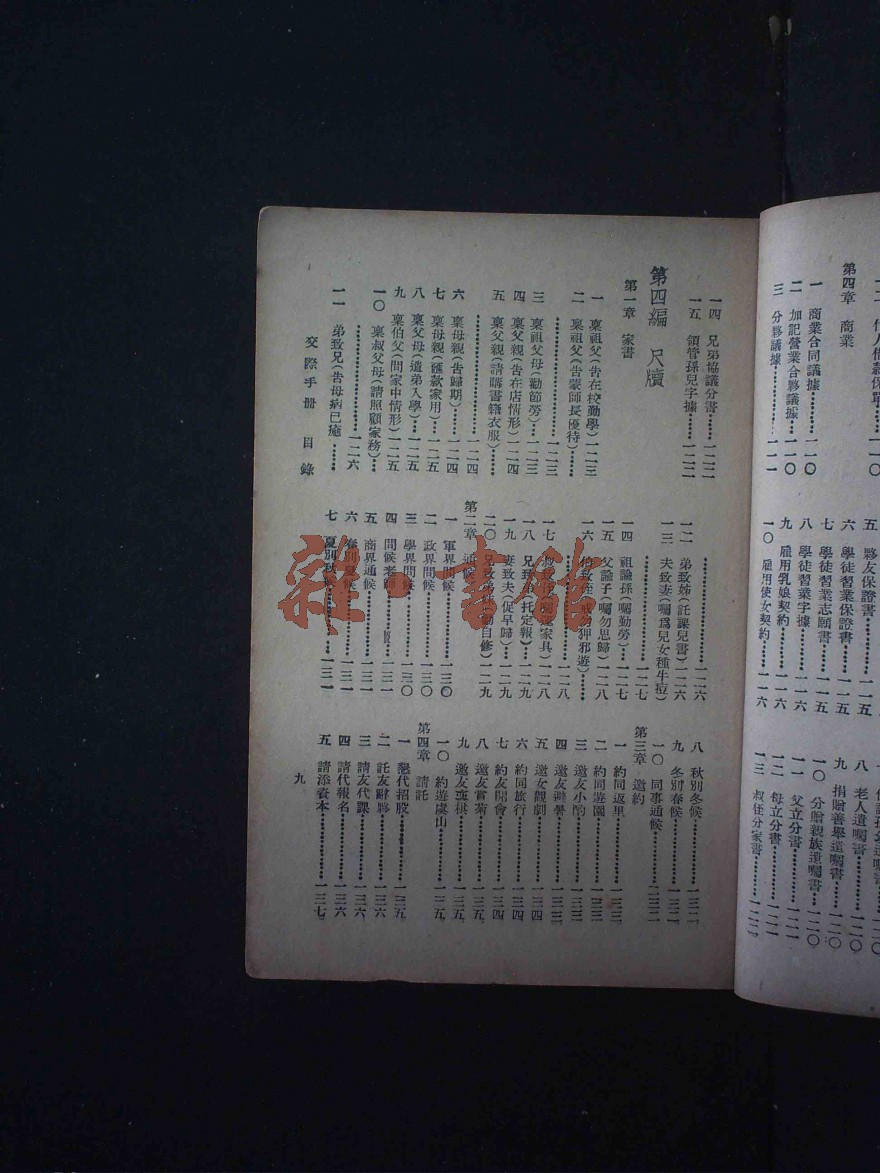 第四章　商業
一　商業合同議據………一一〇
二　加記營業合夥議據…一一〇
三　分夥議據……………一一一
五　夥友保證書…………一一五
六　學徒習業保證書……一一五
七　學徒習業志願書……一一五
八　學徒習業字據………一一六
九　雇用乳娘契約………一一六
一〇　雇用使女契約……一一六
八　老人遺囑書…………一二〇
九　捐贈善舉遺囑書……一二〇
一〇　分贈親族遺囑書…一二〇
一一　父立分書…………一二一
一二　母立分書…………一二一
一三　叔侄分家書………一二二
一四　兄弟協議分書……一二二
一五　領管孫兒字據……一二二
第四編　尺牘
第一章　家書
一　稟祖父（告在校勤學）一二三
二　稟祖父（告蒙師長優待）……
三　稟祖父母（勸節勞）…一二三
四　稟父親（告在店情形）一二四
五　稟父親（請購書籍衣服）……
…………………一二四
六　稟母親（告歸期）…一二四
七　稟母親（匯款家用）…一二五
八　稟父母（遣弟入學）…一二五
九　稟伯父（問家中情形）一二五
一〇　稟叔父母（請照顧家務）…
…………………一二六
一一　弟致兄（告母病已癒……
…………………一二六
一二　弟致姊（託課兒書）一二六
一三　夫致妻（囑爲兒女種牛痘）
…………………一二七
一四　祖諭孫（囑勤勞）…一二七
一五　父諭子（囑勿思歸）一二八
一六　伯致姪（戒勿狎邪遊）……
…………………一二八
一七　家具）一二八
一八　兄致（托定報）…一二九
一九　妻致夫（促早歸）…一二九
二〇　兄致自修）…一二九
第二章　通候
一　軍界問候……一三〇
二　政界問候……一三〇
三　學界問候……一三〇
四　問候老師……一三一
五　商界通候……一三一
六　春別夏候……一三一
七　夏別秋候……一三一
八　秋別冬候……一三二
九　冬別春候……一三二
一〇　同事通候……一三二
第三章　邀約
一　約同返里……一三三
二　約同遊園……一三三
三　邀友小酌……一三三
四　邀友避暑……一三三
五　邀女觀劇……一三四
六　約同旅行……一三四
七　約友開會……一三四
八　邀友賞菊……一三五
九　邀友弈棋……一三五
一〇　約遊虞山……一三五
第四章　請託
一　懇代招股……一三五
二　託友辭夥……一三六
三　請友代課……一三六
四　請代報名……一三六
五　請添資本……一三七
交際手册　目錄
九
雜·書館